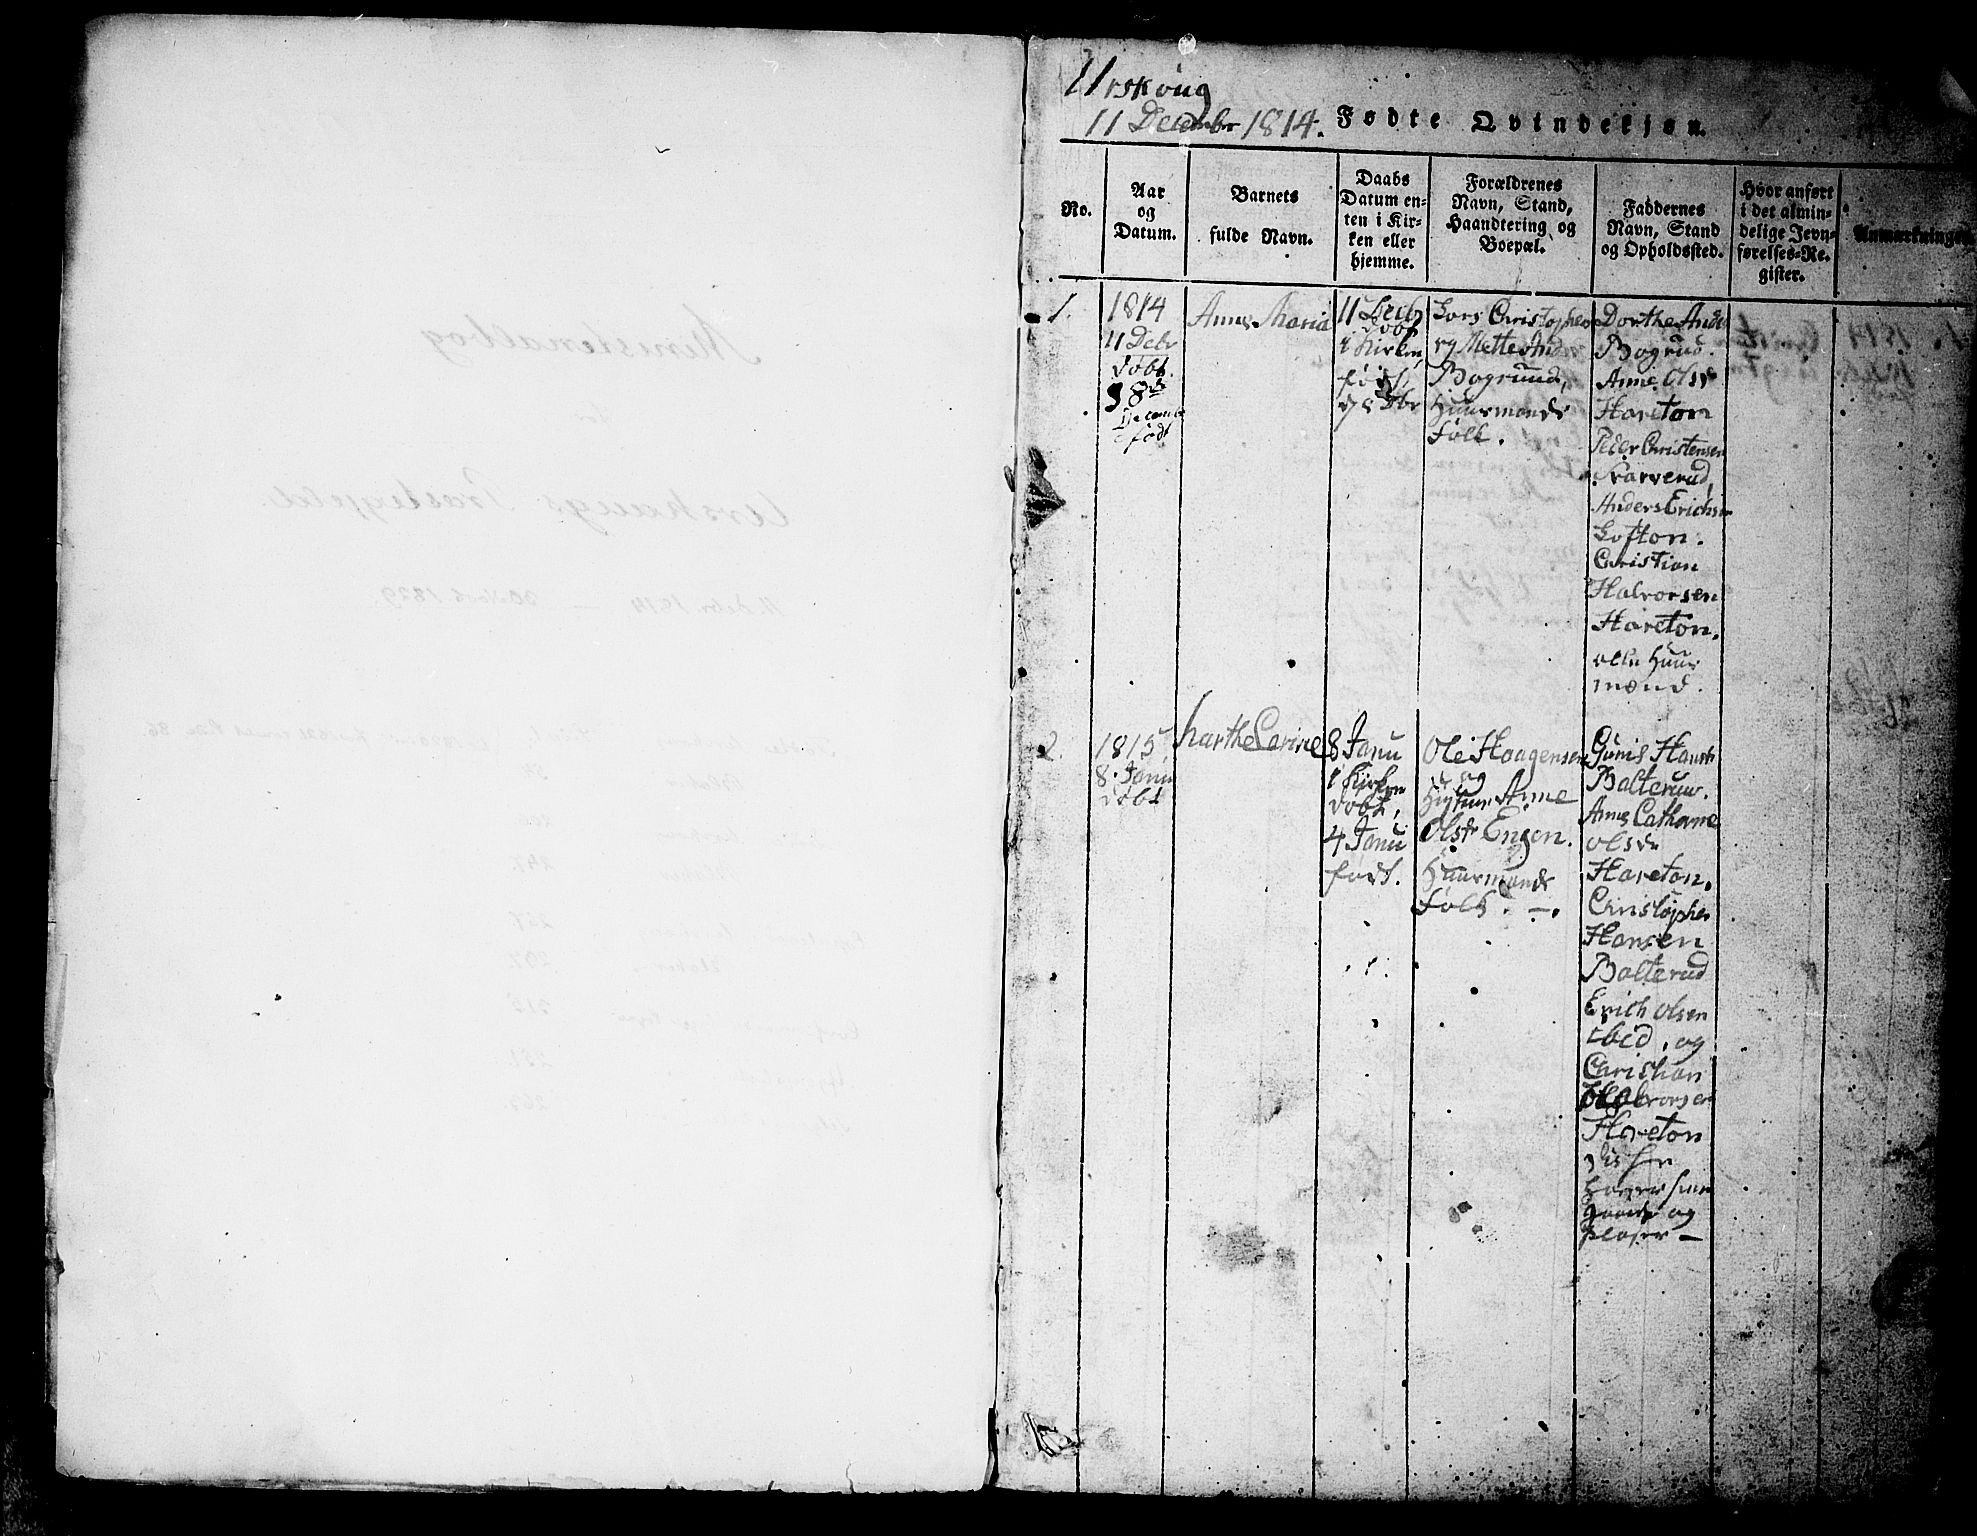 Urskoug
11 December 1814. Fødte Qvindekjøn.
No.
Aar
og
Datum.
Barnets
fulde Navn.
Daabs
Datum en-
ten i Kir-
ken eller
hjemme.
Forældrenes
Navn, Stand,
Haandtering og
Boepæl.
Faddernes
Navn, Stand
og Opholdssted.
Hvor anført
i det almin-
delige Jevn-
førelses-Re-
gister.
Anmærkninger
1.
1814
11 Debr
døbt.
8de
Decemb
født
Anne Maria
11 Decb
døbt
i Kirken,
født
d 8 Dbr
Lars Christophers
og Mette And
Bogrund,
Huusmands
folk.
Dorthe Anders
Bogrud.
Anne Olsd
Hareton
Peder Christensen
Narverud,
Anders Erichsen
Lofton.
Christian
Halvorsen
Hareton.
alle Huus
mænd.
2
1815
8. Janu
døbt
Marthe Carine
8 Janu
i Kirken
døbt,
4 Janu
født.
Ole Haagensen
og
Hustrue Anne
Olsdr Engen.
Huusmands
folk. —.
Gunis Hansd
Balterud.
Anne Cathrine
Olsdr
Hareton.
Christopher
Hansen
Balterud
Erich Olsen
ibid. og
Christian
Halvorsen
Hareton
og
pladser —